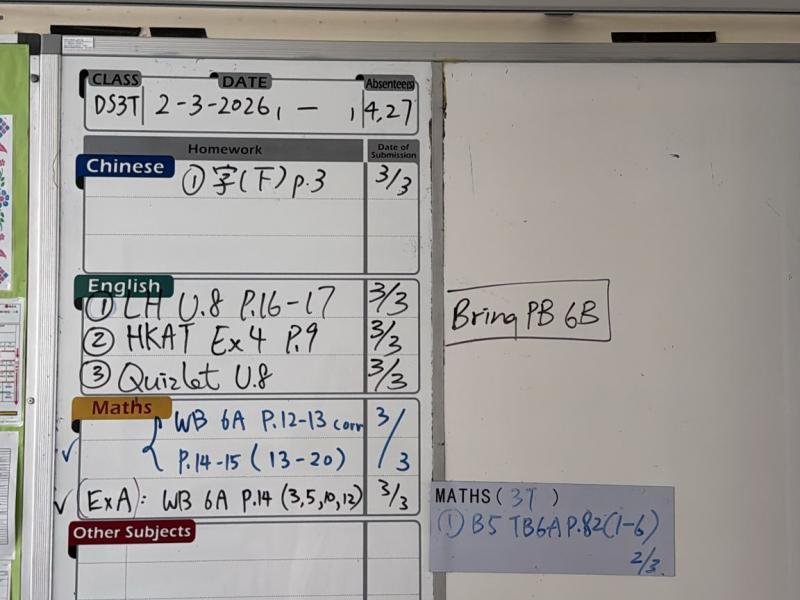 CLASS DATE Absentees
DS3T 2-3-2026, — , 4,27
Homework Date of Submission
Chinese
① 字(下) p.3 3/3
English
① LH U.8 P.16-17 3/3
② HKAT Ex4 P.9 3/3
③ Quizlet U.8 3/3
Bring PB 6B
Maths
WB 6A P.12-13 corr 3/3
P.14-15 (13-20)
(ExA): WB 6A P.14 (3,5,10,12) 3/3
Other Subjects
MATHS( 3T )
① B5 TB6A P.82(1-6)
2/3